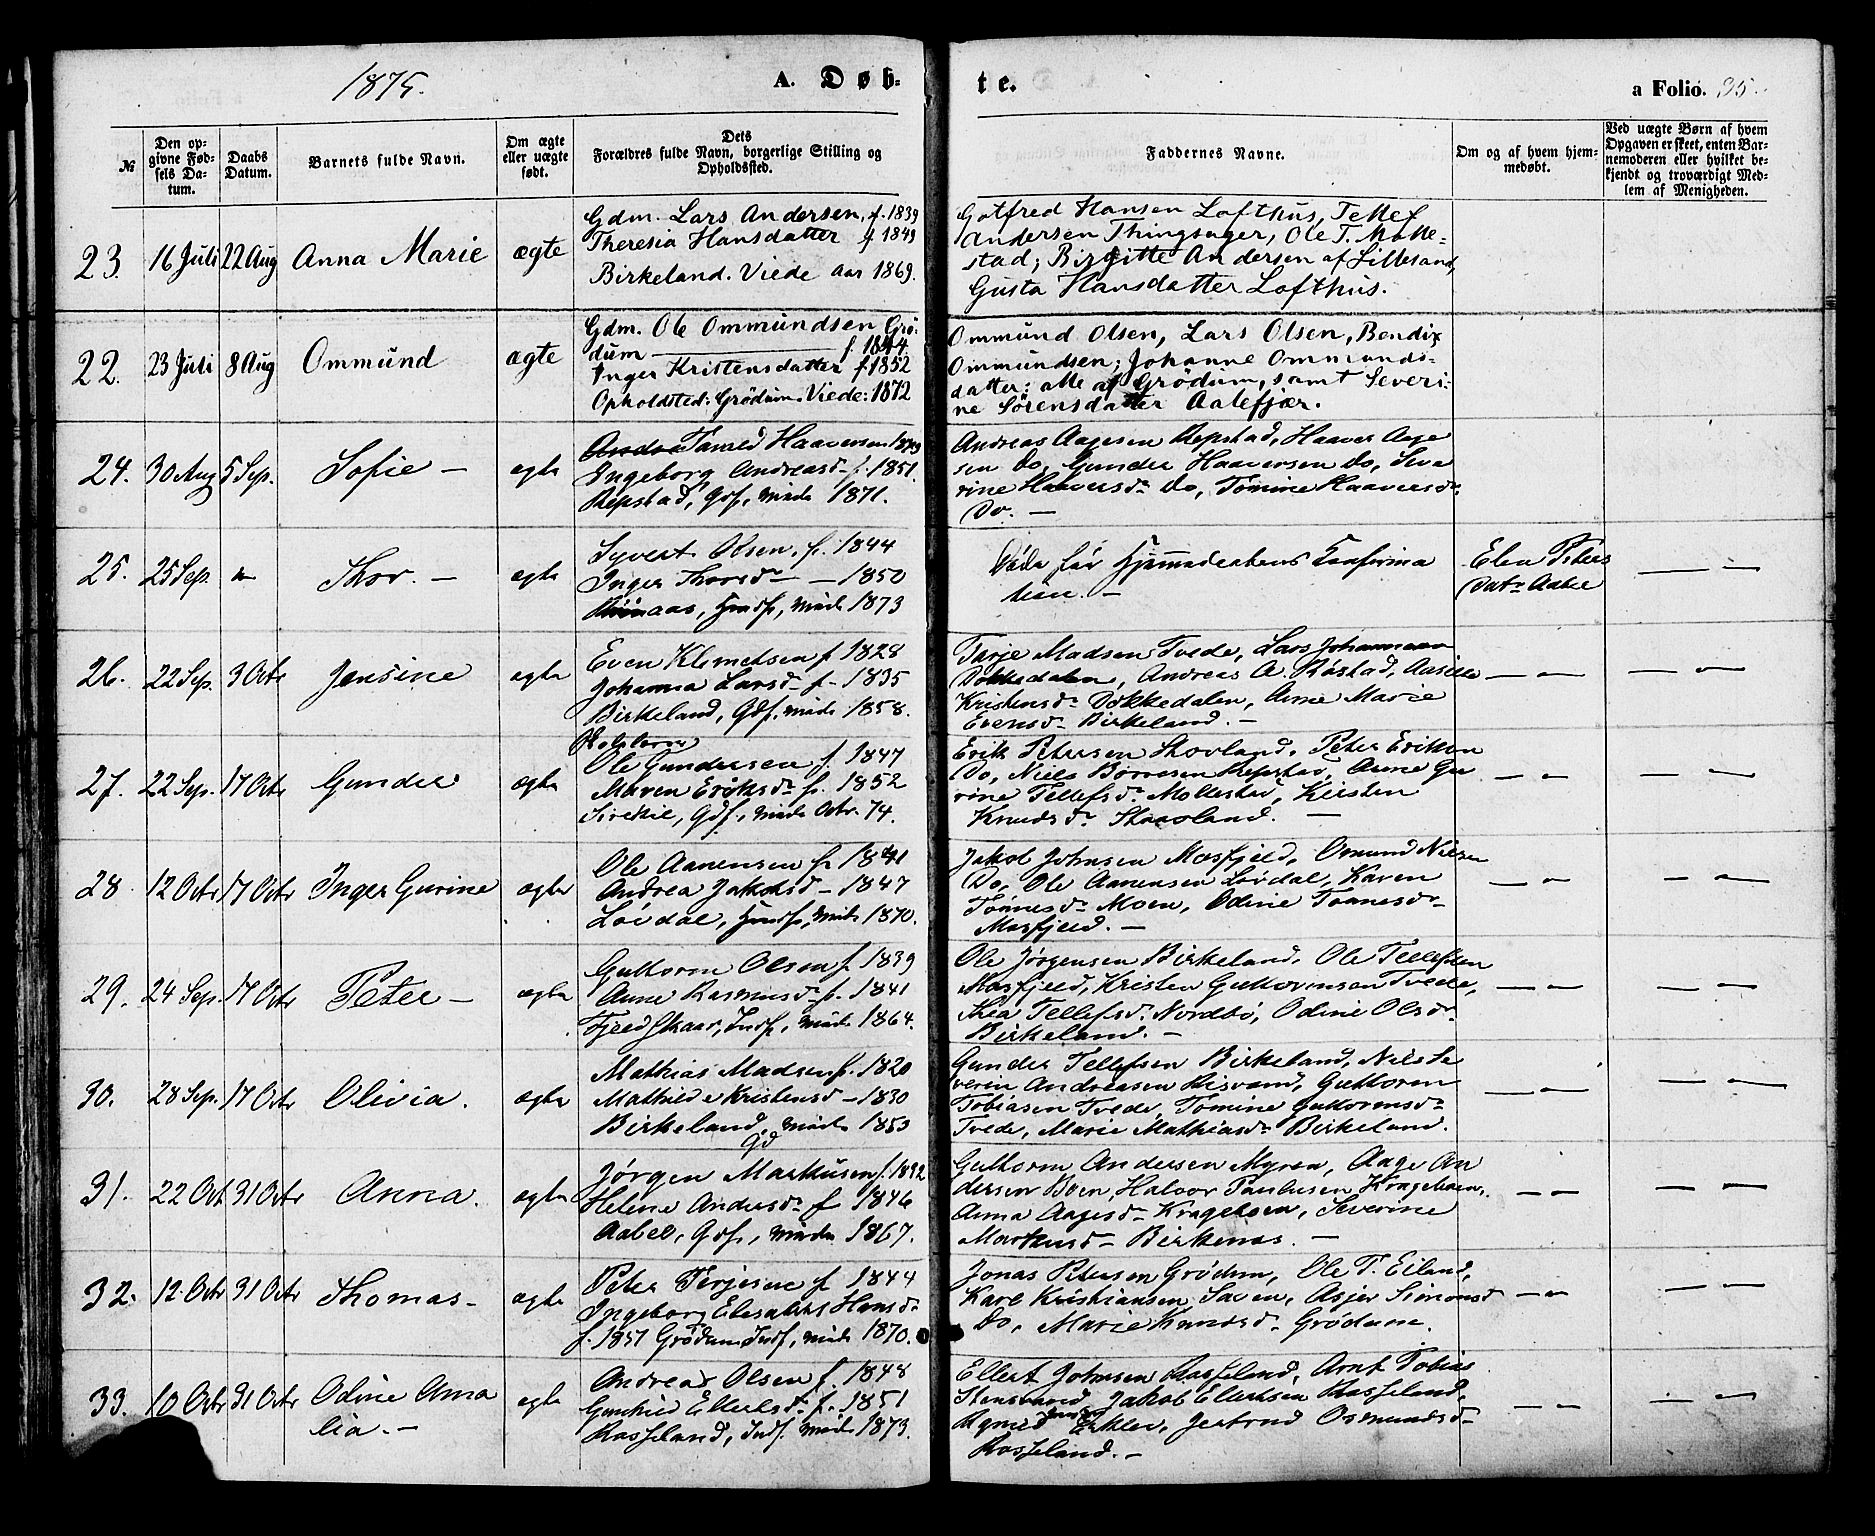 1875.
A. Døb-
te.
a Folio. 35.
№
Den op-
givne Fød-
sels Da-
tum.
Daabs
Datum.
Barnets fulde Navn.
Om ægte
eller uægte
født.
Dets
Forældres fulde Navn, borgerlige Stilling og
Opholdssted.
Faddernes Navne.
Om og af hvem hjem-
medøbt.
Ved uægte Børn af hvem
Opgaven er skeet, enten Bar-
nemoderen eller hvilket be-
kjendt og troværdigt Med-
lem af Menigheden.
23. 16 Juli 22 Aug Anna Marie ægte
Gdm. Lars Andersen, f. 1839
Theresia Hansdatter f 1849
Birkeland. Viede aar 1869.
Gotfred Hansen Lofthus, Tellef
Andersen Thingsager, Ole T. Molle=
stad; Birgitte Andersen af Lillesand,
Gusta Hansdatter Lofthus.
22. 23 Juli 8 Aug Ommund ægte
Gdm. Ole Ommundsen Grö-
dum — f. 1844
Inger Kristensdatter f. 1852
Opholdsted: Grödum. Viede: 1872
Ommund Olsen, Lars Olsen, Bendix
Ommundsen; Johanne Ommunds-
datter: alle af Grödum, samt Severi-
ne Sørensdatter Aalefjær.
24. 30 Aug 5 Sep. Sofie — ægte
Haaversen
Ingeborg Andreasd- f. 1851.
Repstad, Gdf, viede 1871.
Andreas Aagesen Repstad, Haaver Aage
sen Do, Gunder Haaversen Do, Seve
rine Haaversd- Do, Tomine Haaversd-
Do. —
25. 25 Sep. Thor. — ægte
Syvert Olsen, f. 1844
Inger Thorsd- — 1850
viede 1873
Døde før Hjemmedaabens Confirma
tion. —
Elen Peters
Datr Aabel
26. 22 Sep. 3 Octr Jensine ægte
Even Klemetsen f 1828
Johanna Larsd- f. 1835
Birkeland, Gdf. viede 1858.
Terje Madsen Tvede, Lars Johannesen
Dokkedalen, Andreas A. Røstad,
Kristensd- Dokkedalen, Anne Marie
Evensd- Birkeland. —
27. 22 Sep. 17 Octr Gunder ægte
Ole Gundersen f. 1847
Maren Eriksd- f. 1852
Gdf, viede Octr. 74.
Erik Petersen Skovland, Peter Eriksen
Do, Niels Børresen Repstad, Anne Gu
rine Tellefsd- Mollestad, Kirsten
Knudsd- Skovland. —
28. 12 Octr 17 Octr Inger Gurine ægte
Ole Aanensen f. 1841
Andrea Jakobsd — 1847
Løvdal, viede 1870.
Jakob Johnsen Mosfjeld, Omund Nilsen
Do, Ole Aanensen Løvdal, Karen
Tønnesd- Moen, Odine Tønnesd-
Mosfjeld. —
29. 24 Sep. 17 Octr Peter — ægte
Guttorm Olsen f. 1839
Anne Rasmusd- f. 1841
Fjeldskaar, Indf, viede 1864.
Ole Jørgensen Birkeland, Ole Tellefsen
Mosfjeld, Kristen Guttormsen Tvede,
Thea Tellefsd. Nordbø, Odine Olsd-
Birkeland. —
30. 28 Sep. 17 Octr Olivia. ægte
Mathias Madsen f. 1820
Mathilde Kristensd — 1830
Birkeland, Gd viede 1853
Gunder Tellefsen Birkeland, Nils Se
verin Andreasen Risvand, Guttorm
Tobiasen Tvede, Tomine Guttormsd-
Tvede, Marie Mathiasd- Birkeland.
31. 22 Oct 31 Octr Anna. ægte
Jørgen Markusen f. 1832
Helene Andersd- f 1846
Aabel, Gdf, viede 1867.
Guttorm Andersen Myren, Aage An
dersen Boen, Halvor Paulusen Krageboen,
Anna Aagesd- Krageboen, Severine
Markusd- Birkenes. —
32. 12 Octr 31 Octr Thomas — ægte
Peter Terjesen f 1844
Ingeborg Elisabet Hansd-
f. 1851 Grødum Indf, viede 1870.
Jonas Petersen Grødum, Ole T. Eiland,
Karl Kristiansen Saven, Asjer Simonsd
Do, Marie Knudsd- Grødum.
33. 10 Octr 31 Octr Odine Ama ægte
lia. —
Andreas Olsen f. 1848
Gunhild Ellefsd- f. 1851
Kasseland, Indf. viede 1873.
Ellert Johnsen Kasseland, Arnt Tobias
Stensvand, Jakob Ellertsen Kasseland,
Jertrud Osmundsd-
Kasseland. —